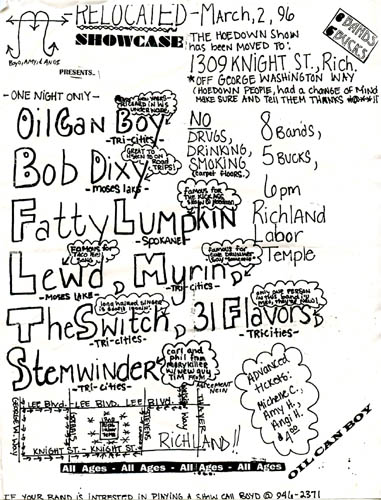 RELOCATED - March, 2, 96
SHOWCASE
Boyd, Amy, & Angi
PRESENTS..
THE HOEDOWN SHOW
has been MOVED to:
1309 KNIGHT ST., Rich.
*OFF GEORGE WASHINGTON WAY
(HOEDOWN PEOPLE, had a CHANGE of MIND
MAKE SURE AND TELL THEM THANKS
6 BANDS
BUCKS
-ONE NIGHT ONLY-
Oil Can Boy
-TRI-CITIES-
Bob Dixy
GREAT TO
LISTEN TO ON
ROAD
TRIPS!
-MOSES LAKE-
Fatty Lumpkin
Famous for
-SPOKANE-
Lewd, Myrin,
Famous for
TACO BELL
SONG
Famous for
-MOSES LAKE-
-TRI-CITIES-
The Switch, 31 Flavors,
long haired singer
ONLY ONE PERSON
IN THIS BAND
-TRI-CITIES-
TRICITIES-
Stemwinder
carl and
phil from
MARYKILLER
W/ NEW GUY
TIM FROM
AGREEMENT
NEIN
-TRI-CITIES-
NO
DRUGS,
DRINKING,
SMOKING
(carpet floors,)
8 Bands,
5 Bucks,
6pm
Richland
Labor
Temple
Advanced
tickets:
Michelle C.,
Amy H.,
Angi H.
$4.00
LEE BLVD. - LEE BLVD. LEE BLVD.
KNIGHT ST - KNIGHT ST -
RICHLAND!!
OIL CAN BOY
All Ages - All Ages - All Ages - All Ages
IF YOUR BAND IS INTERESTED IN PLAYING A SHOW CALL BOYD @ 946-2371